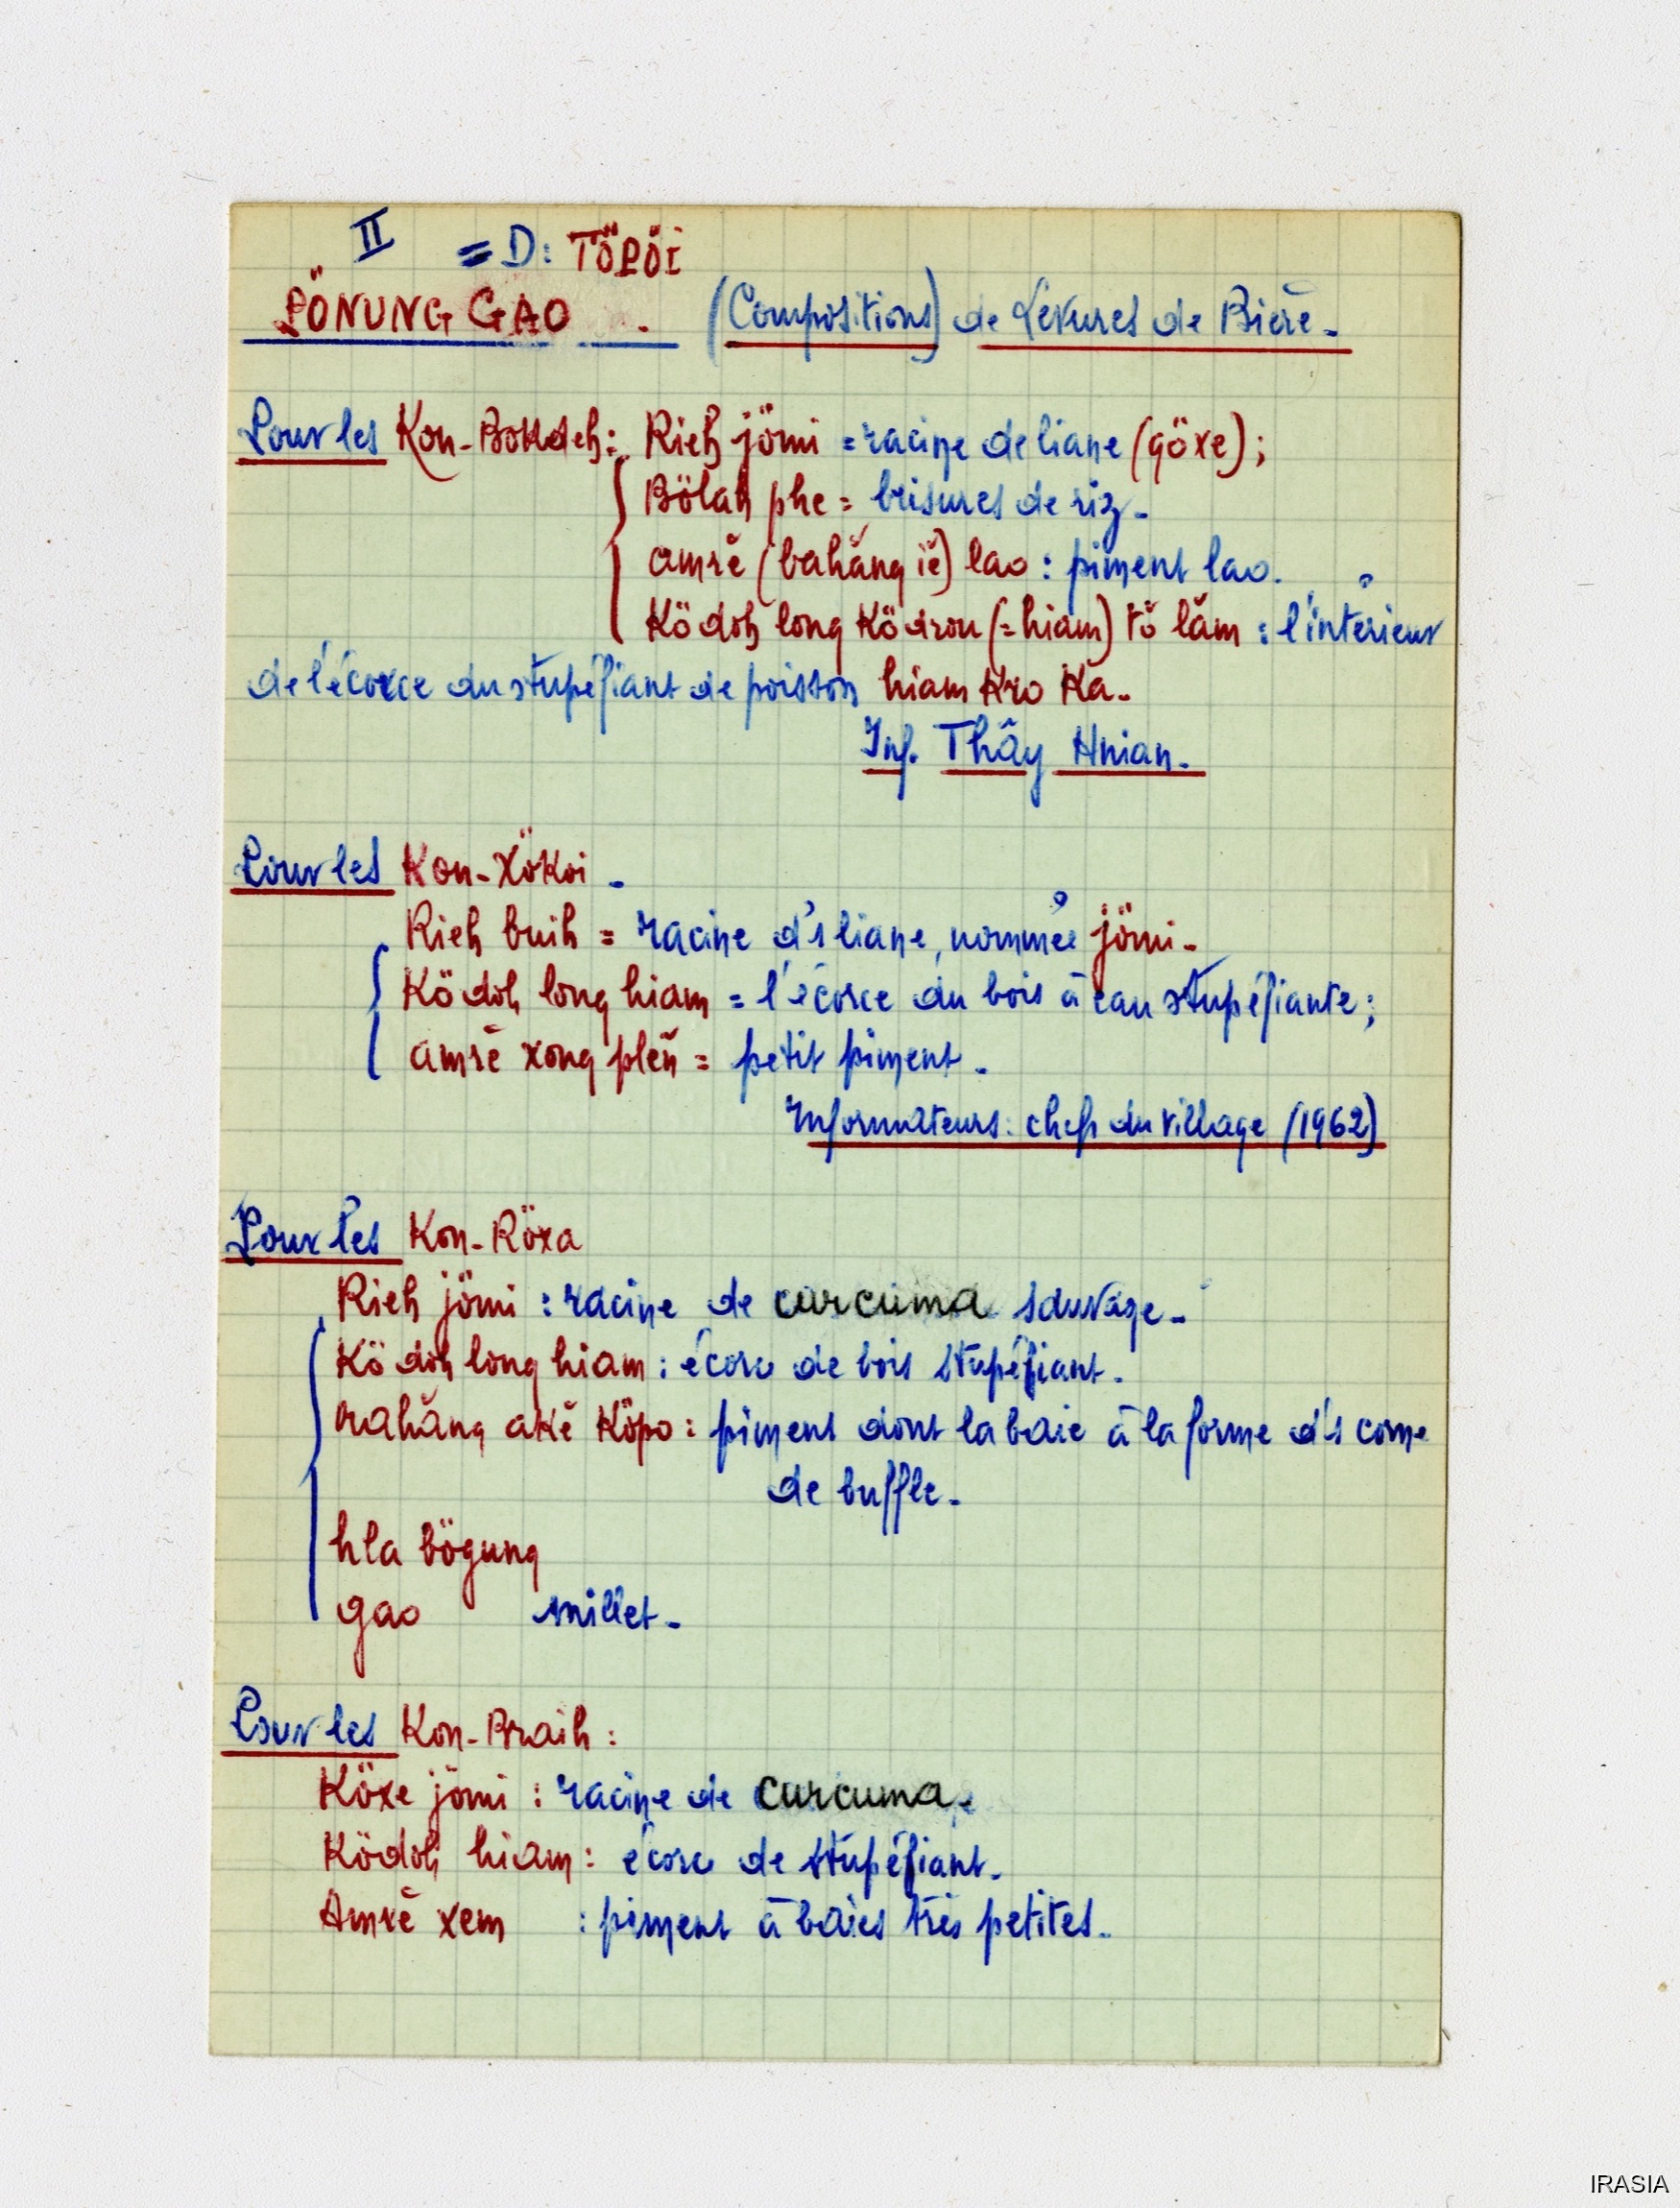 II = D: TÖPÖI
PÖNUNG GAO . (Compositions) de Levures de Bière -
Pour les Kon-Bokdeh: Rieh jömi = racine de liane (göxe);
Bölah phe = brisures de riz -
amrĕ (bahăng iĕ) lao : piment lao.
Ködoh long Ködron (= hiam) tŏ lăm : l'intérieur
de l'écorce du stupéfiant de poisson hiam Kro Ka -
Inf. Thây Hnian -
Pour les Kon-Xökoi -
Rieh buih = racine d'1 liane, nommée jömi -
Ködoh long hiam = l'écorce du bois à eau stupéfiante;
amrĕ xong pleñ = petit piment -
Informateurs: chefs du village (1962)
Pour les Kon-Röxa
Rieh jömi : racine de curcuma sauvage -
Kö doh long hiam : écorce de bois stupéfiant -
mahăng akĕ Köpo : piment dont la baie à la forme d'1 corne
de buffle -
hla bögung
gao millet -
Pour les Kon-Braih :
Köxe jömi : racine de curcuma.
Ködoh hiam : écorce de stupéfiant -
Amrĕ xem : piment à baies très petites -
IRASIA